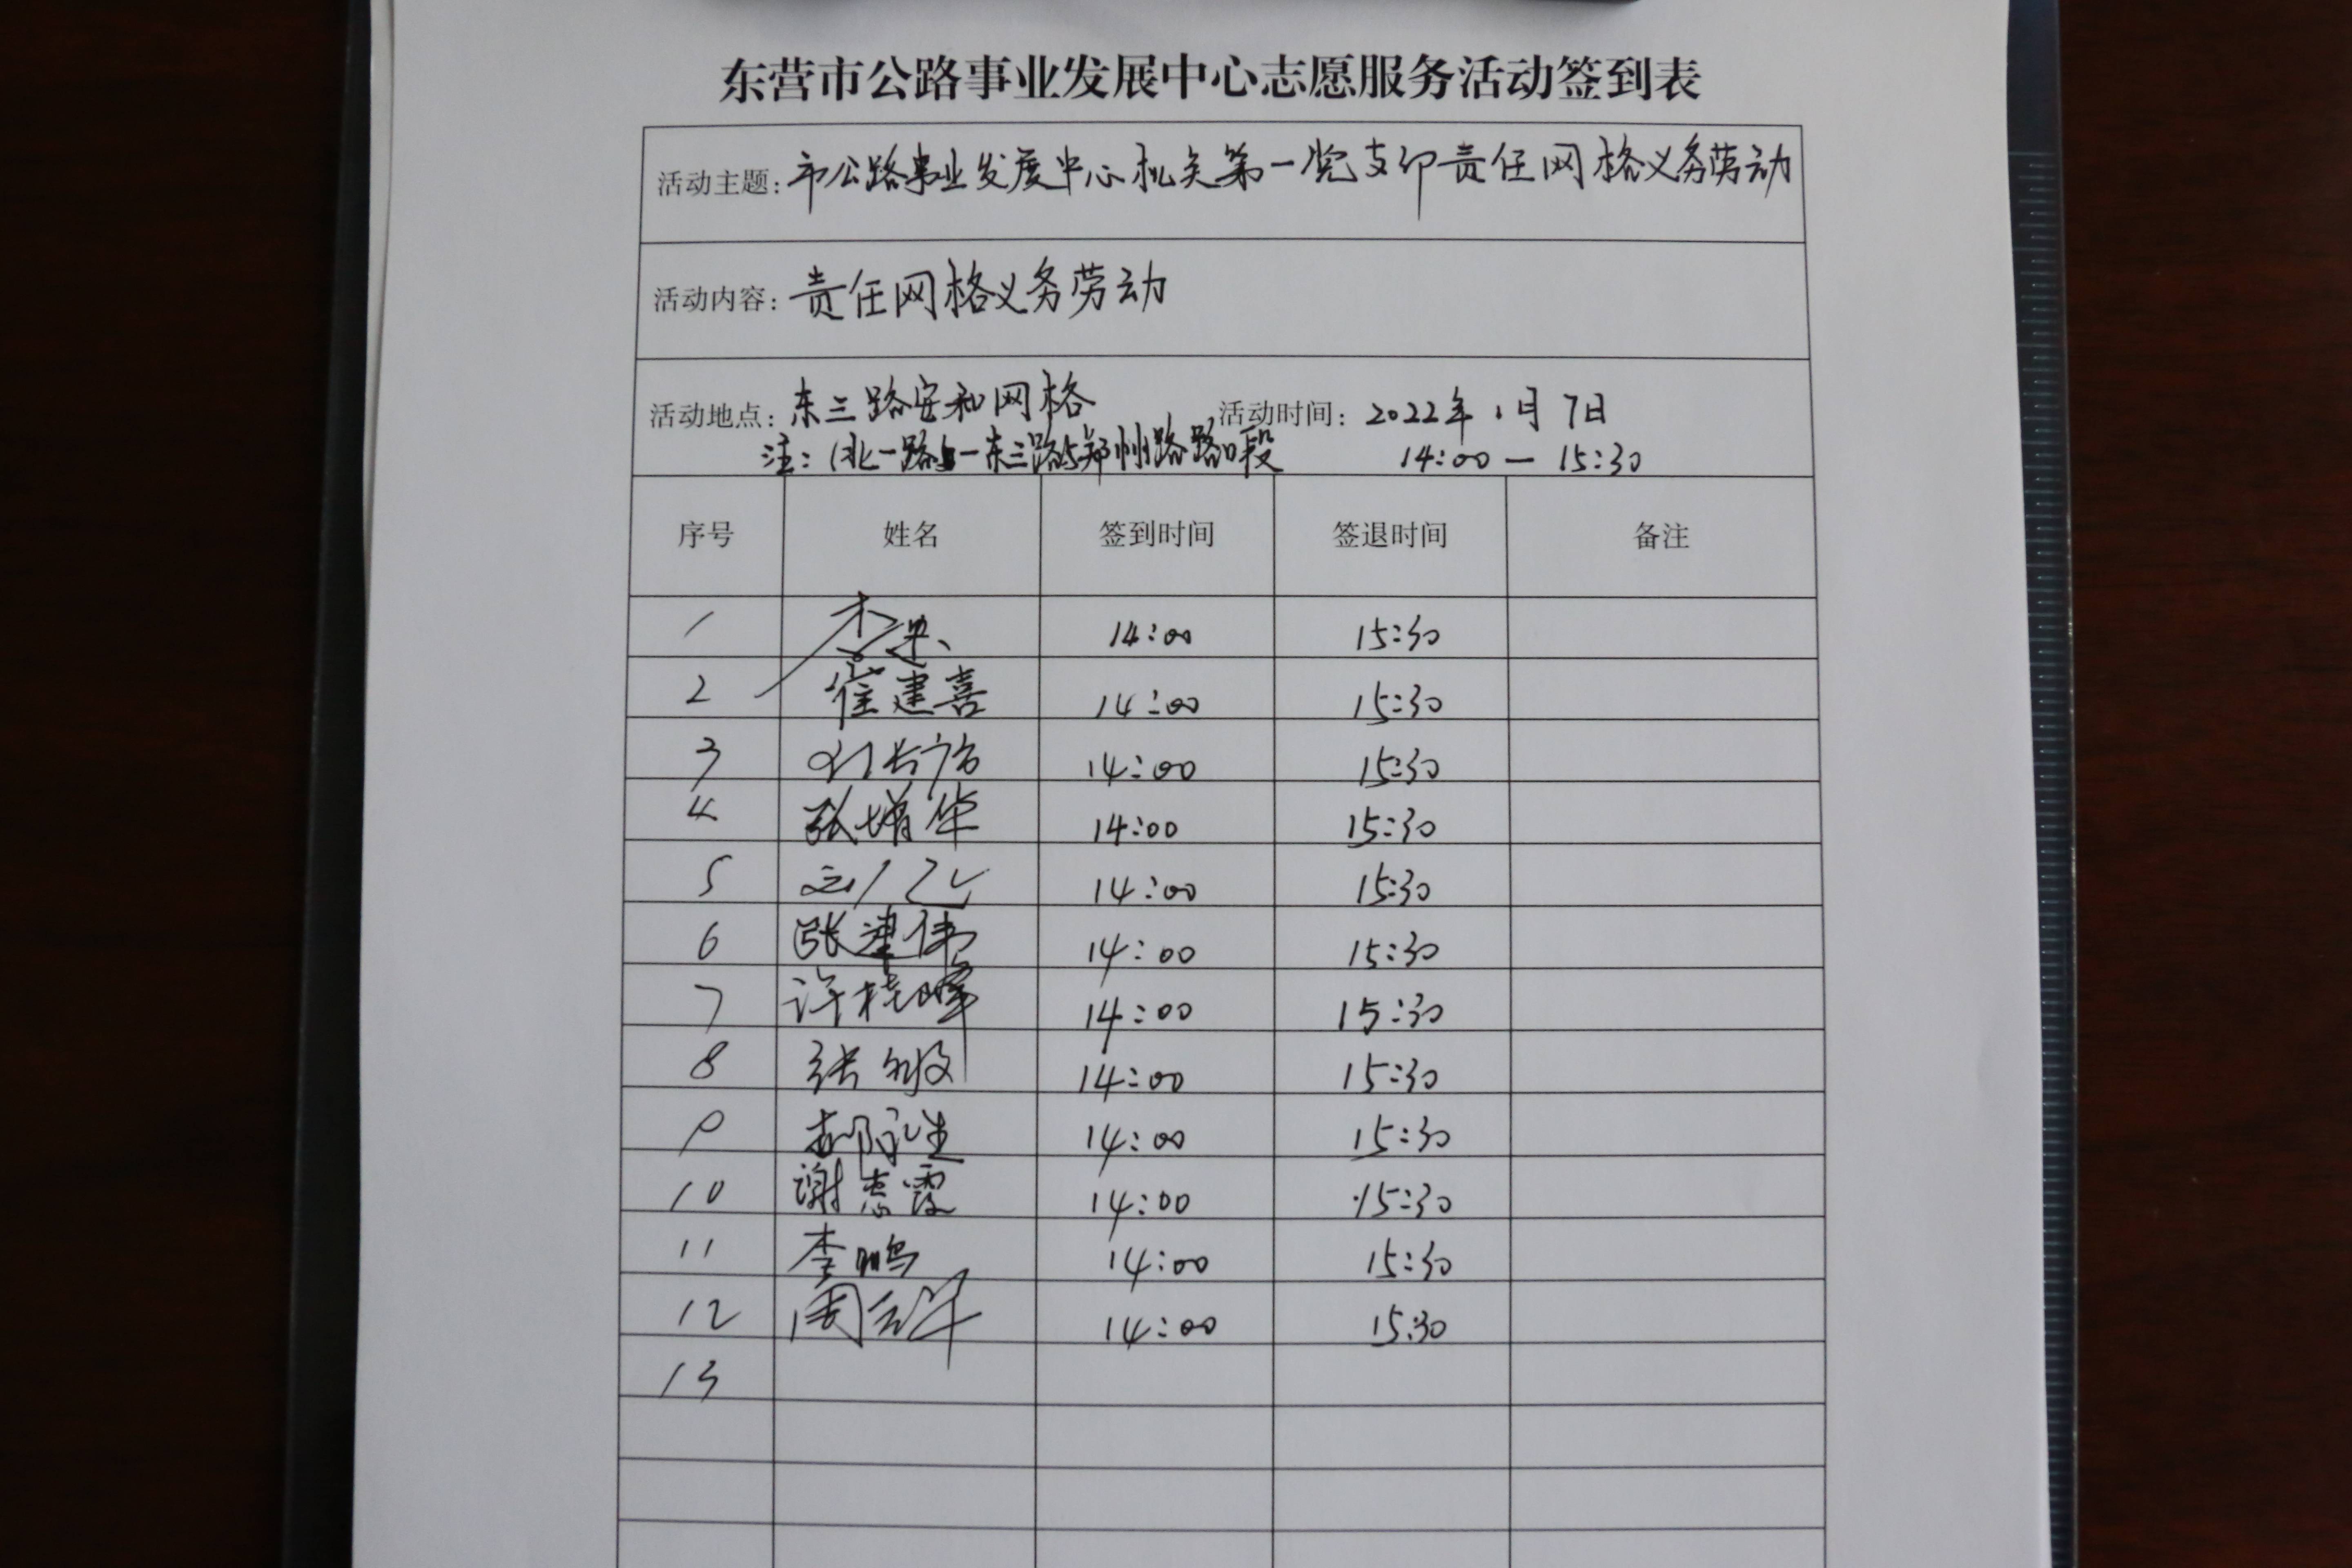 东营市公路事业发展中心志愿服务活动签到表
活动主题: 市公路事业发展中心机关第一党支部责任网格义务劳动
活动内容: 责任网格义务劳动
活动地点: 东三路安和网格 活动时间: 2022年1月7日
注: (北一路与东三路与郑州路路口段 14:00 — 15:30
序号 姓名 签到时间 签退时间 备注
1 李 14:00 15:30
2 崔建喜 14:00 15:30
3 刘 14:00 15:30
4 张增华 14:00 15:30
5 14:00 15:30
6 张建伟 14:00 15:30
7 许桂峰 14:00 15:30
8 张敏 14:00 15:30
9 生 14:00 15:30
10 谢惠霞 14:00 15:30
11 李鹏 14:00 15:30
12 周 14:00 15:30
13